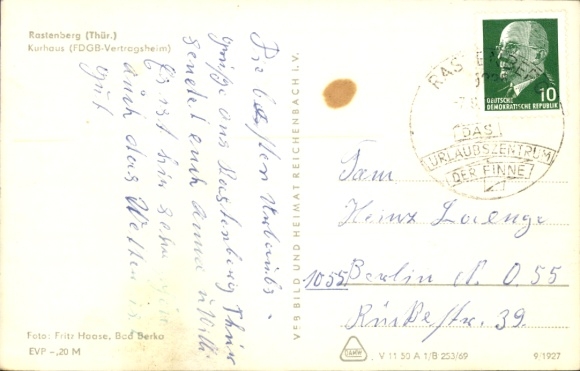 Rastenberg (Thür.)
Kurhaus (FDGB-Vertragsheim)
Die besten Urlaubs-
grüße aus Rastenberg Thür
sendet euch Anna u. Willi
Es ist hier sehr
auch das Wetter ist
gut
Foto: Fritz Haase, Bad Berka
EVP -,20 M
VEB BILD UND HEIMAT REICHENBACH I. V.
DEUTSCHE
DEMOKRATISCHE REPUBLIK
10
DAS
URLAUBSZENTRUM
DER FINNE
Fam
Heinz Laenge
1055 Berlin
Rücke/str. 39
V 11 50 A 1/B 253/69
9/1927